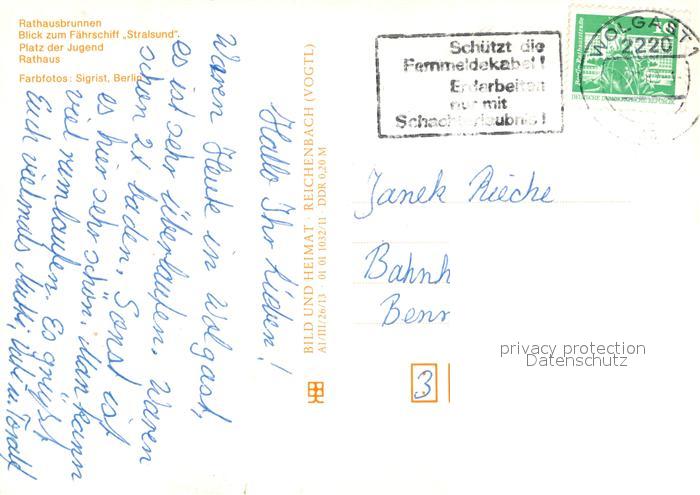 Rathausbrunnen
Blick zum Fährschiff „Stralsund".
Platz der Jugend
Rathaus
Farbfotos: Sigrist, Berlin
Hallo Ihr Lieben!
Waren Heute in Wolgast,
es ist sehr überlaufen. Waren
schon 2x baden. Sonst ist
es hier sehr schön. Man kann
viel rumlaufen. Es grüßt
Euch vielmals Mutti, Vati u. Torald
BILD UND HEIMAT · REICHENBACH (VOGTL)
A1/III/26/13 · 01 01 1032/11 DDR 0,20 M
Schützt die
Fernmeldekabel!
Erdarbeiten
nur mit
Schachterlaubnis!
WOLGAST 1
2220
DEUTSCHE DEMOKRATISCHE REPUBLIK
Janek Rieche
Bahnh
Benr
3
privacy protection
Datenschutz